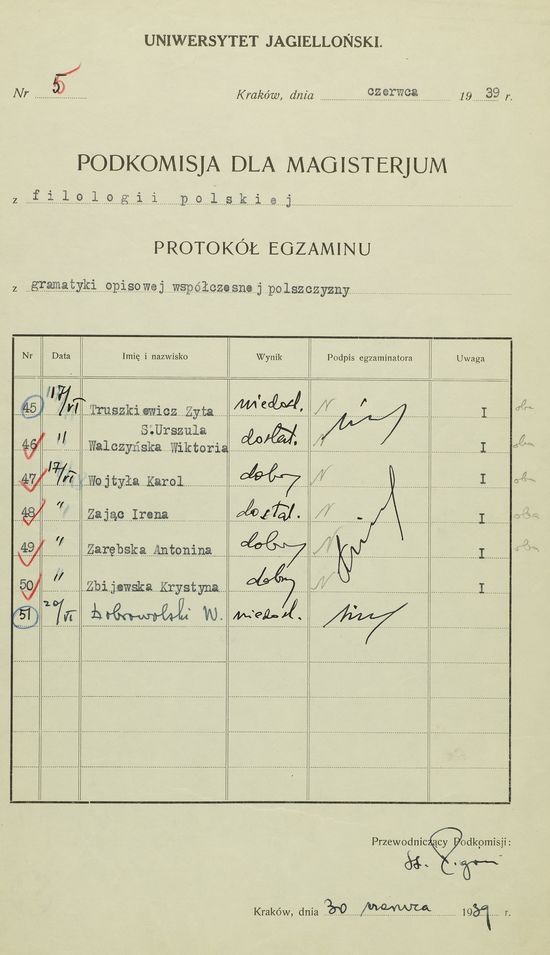 UNIWERSYTET JAGIELLOŃSKI.
Nr 5 Kraków, dnia czerwca 1939 r.
PODKOMISJA DLA MAGISTERJUM
z filologii polskiej
PROTOKÓŁ EGZAMINU
z gramatyki opisowej współczesnej polszczyzny
Nr Data Imię i nazwisko Wynik Podpis egzaminatora Uwaga
45 17/VI Truszkiewicz Zyta niedost. N I
S.Urszula
46 " Walczyńska Wiktoria dostat. N I
47 17/VI Wojtyła Karol dobry N I
48 " Zając Irena dostat. N I
49 " Zarębska Antonina dobry N I
50 " Zbijewska Krystyna dobry N I
51 20/VI Dobrowolski W. niedost.
Przewodniczący Podkomisji:
St. Pigoń
Kraków, dnia 30 czerwca 1939 r.